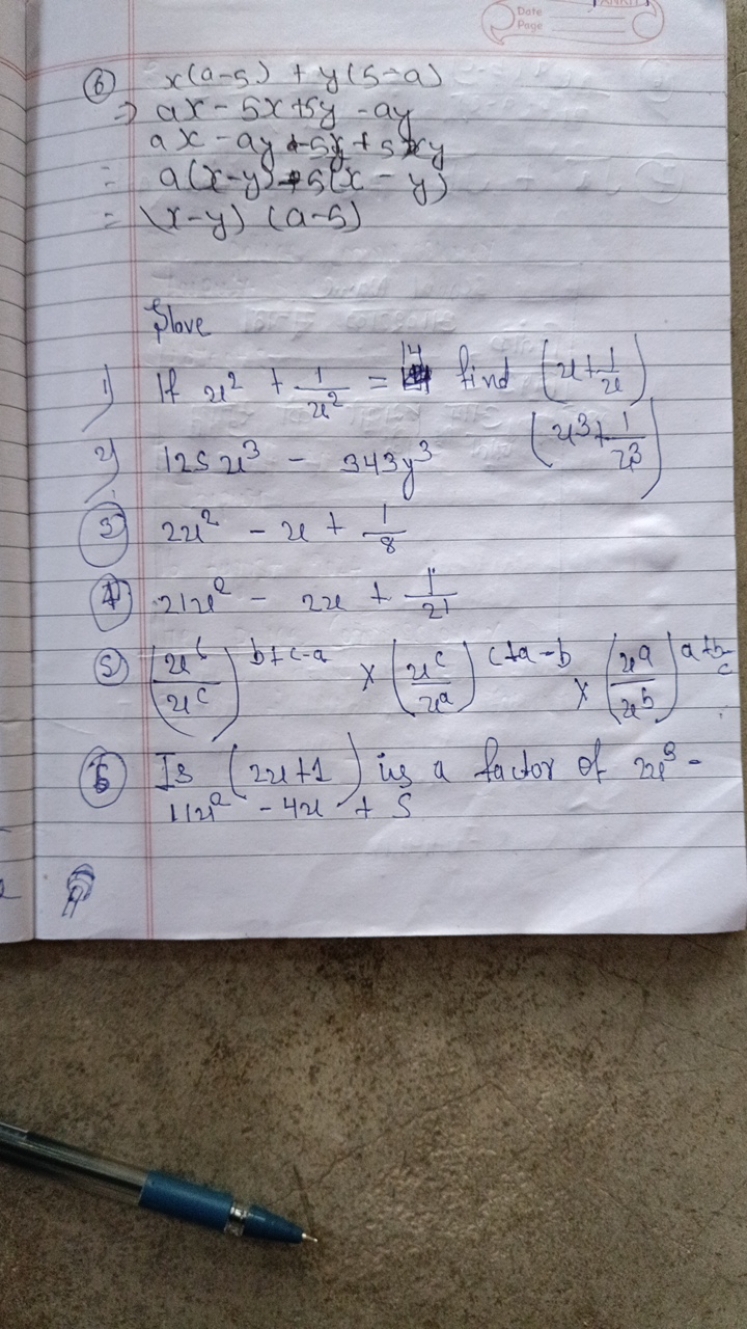 Date
Page
⑥ x(a-5) + y(5-a)
⇒ ax - 5x + 5y - ay
ax - ay - 5x + 5y
= a(x-y) - 5(x - y)
= (x-y) (a-5)
Slove
1) If x² + 1/x² = 14 find (x + 1/x)
(x³ + 1/x³)
2) 125x³ - 343y³
③ 2x² - x + 1/8
④ 21x² - 2x + 1/21
⑤ (x^b/x^c)^b+c-a × (x^c/x^a)^c+a-b × (x^a/x^b)^a+b-c
⑥ Is (2x+1) is a factor of 2x³ -
11x² - 4x + 5